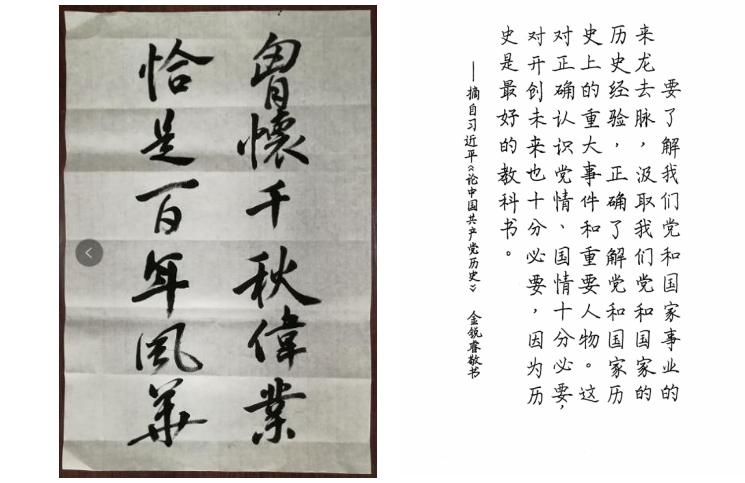 胷懷千秋偉業
恰是百年風華
要了解我们党和国家事业的
来龙去脉，汲取我们党和国家的
历史经验，正确了解党和国家历
史上的重大事件和重要人物。这
对正确认识党情、国情十分必要，
对开创未来也十分必要，因为历
史是最好的教科书。
——摘自习近平《论中国共产党历史》 金锐睿敬书